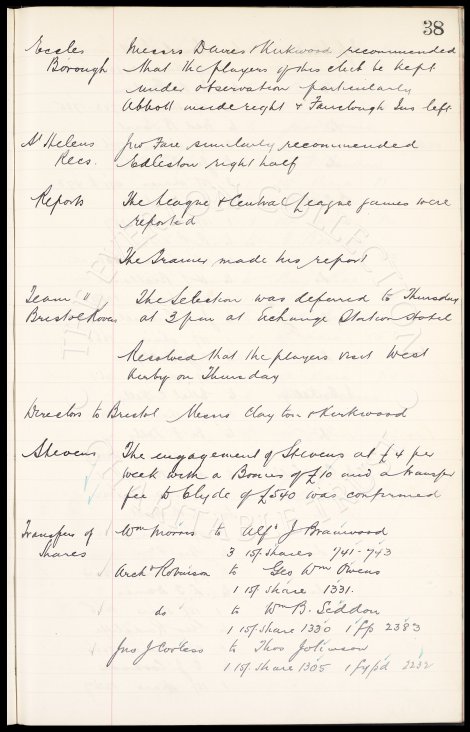 38
Eccles Messrs Davies & Kirkwood recommended
Borough that the players of this club be kept
under observation particularly
Abbott inside right & Fairclough Ins left
St Helens Jno Fare similarly recommended
Recs. Edleston right half
Reports The League & Central League games were
reported
The Trainer made his report
Team v The Selection was deferred to Thursday
Bristol Rovers at 3pm at Exchange Station Hotel
Resolved that the players visit West
Kirby on Thursday
Directors to Bristol Messrs Clayton & Kirkwood
Stevens The engagement of Stevens at £4 per
week with a Bonus of £10 and a transfer
fee to Clyde of £540 was confirmed
Transfers of Wm Morris to Alfd J Brainwood
Shares 3 1st shares 741-743
Archd Robinson to Geo Wm Owens
1 1st share 1331.
do to Wm B. Seddon
1 1st share 1330 1 f p 2383
Jno J Corless to Thos Johnson
1 1st share 1305 1 f y pd 2232
THE EVERTON COLLECTION
CHARITABLE TRUST